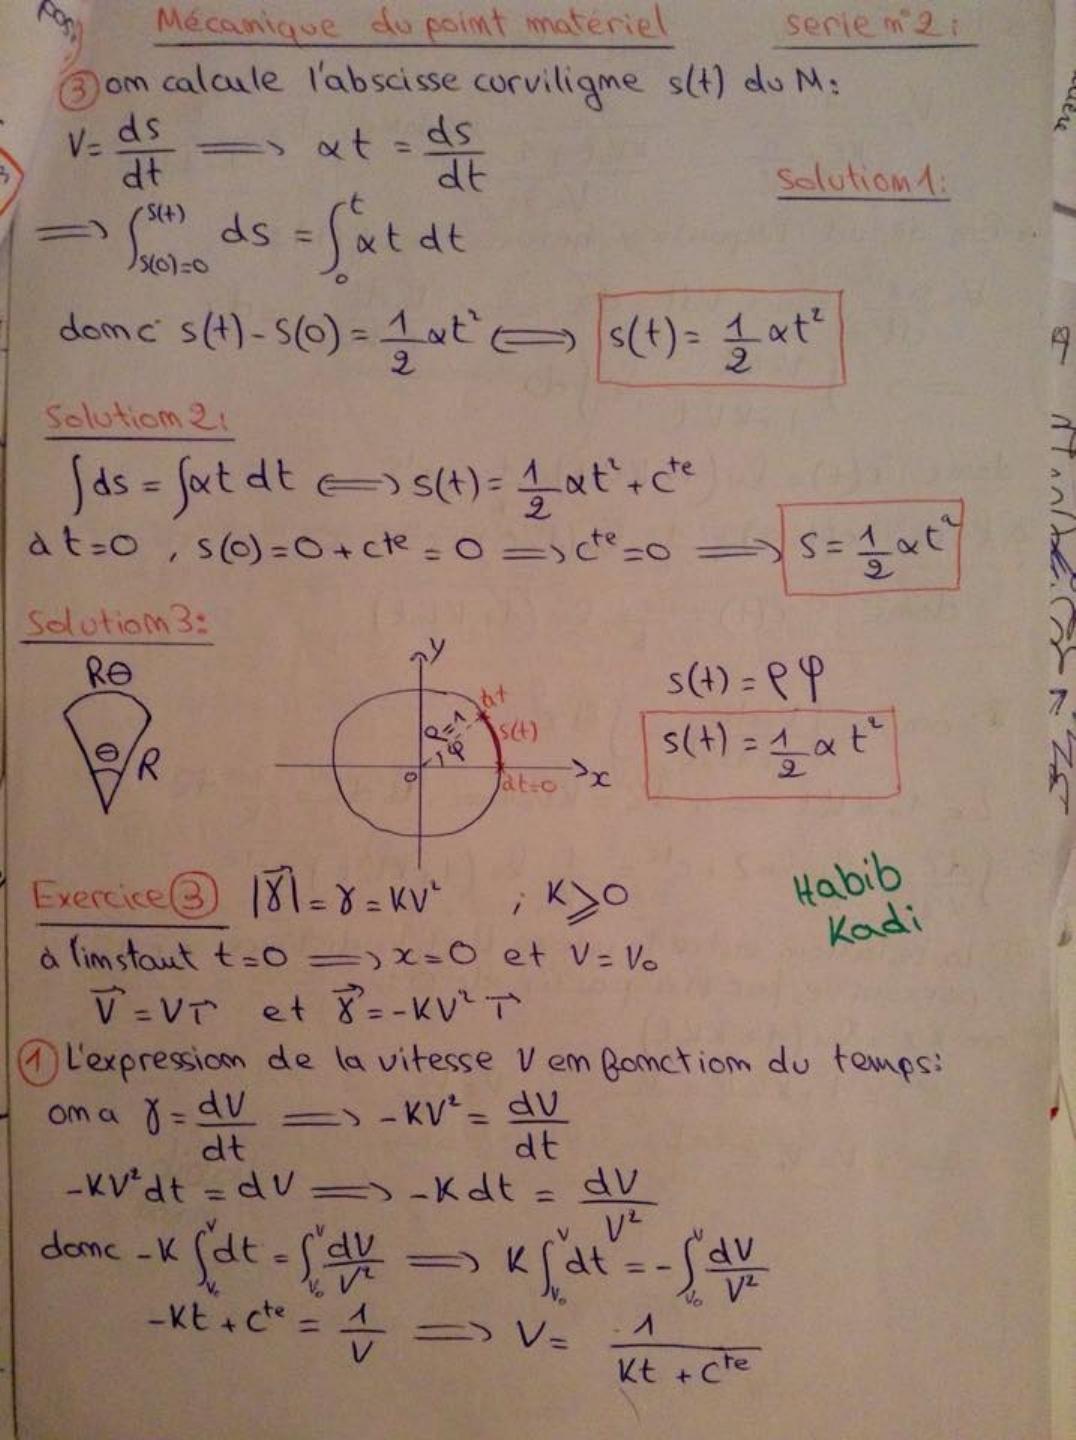 Mécanique du point matériel serie n°2:
③ on calcule l'abscisse curviligne s(t) du M:
V = ds/dt ⟹ αt = ds/dt
Solution 1:
⟹ ∫_{S(0)=0}^{S(t)} ds = ∫_0^t αt dt
donc s(t) - S(0) = 1/2 αt² ⟺ s(t) = 1/2 αt²
Solution 2:
∫ds = ∫αt dt ⟺ s(t) = 1/2 αt² + c^te
à t=0 , s(0)=0+cte = 0 ⟹ c^te=0 ⟹ S = 1/2 αt²
Solution 3:
Rθ
θ
R
y
àt
R=1
s(t)
φ
o
x
àt=0
s(t) = ρφ
s(t) = 1/2 α t²
Exercice ③ |γ⃗| = γ = KV² ; K⩾0
Habib
Kadi
à l'instant t=0 ⟹ x=0 et V=V₀
V⃗ = VT⃗ et γ⃗ = -KV² T⃗
① L'expression de la vitesse V en fonction du temps:
on a γ = dV/dt ⟹ -KV² = dV/dt
-KV²dt = dV ⟹ -Kdt = dV/V²
donc -K ∫_{V₀}^V dt = ∫_{V₀}^V dV/V² ⟹ K ∫_{V₀}^V dt = -∫_{V₀}^V dV/V²
-Kt + c^te = 1/V ⟹ V = 1/(Kt + c^te)